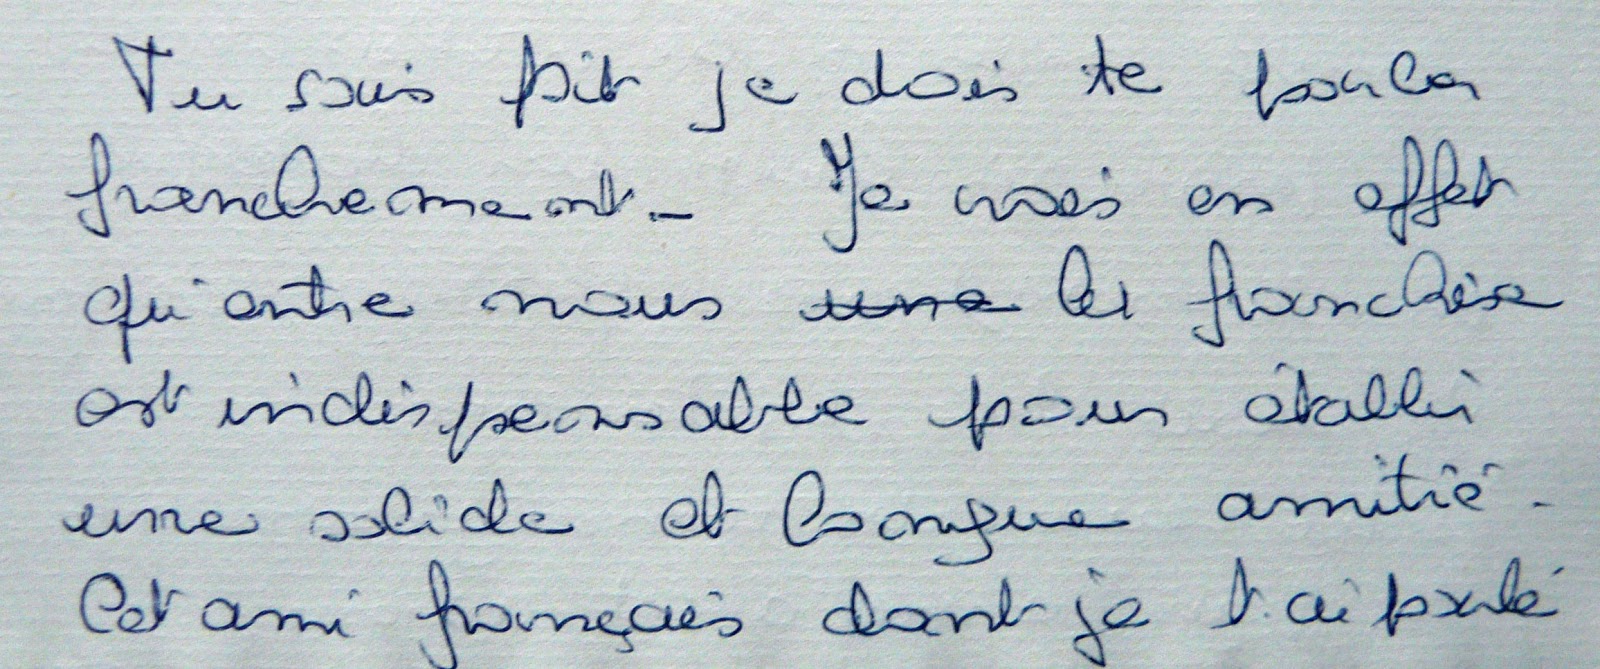 Tu sais Pit je dois te parler
franchement. Je crois en effet
qu'entre nous une la franchise
est indispensable pour établir
une solide et longue amitié.
Cet ami français dont je t'ai parlé